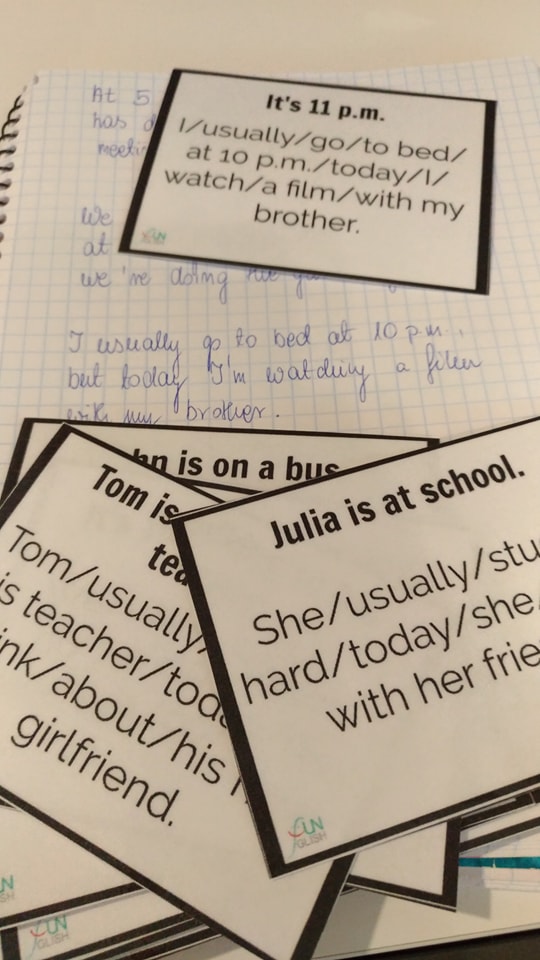 At 5
has
It's 11 p.m.
I/usually/go/to bed/
at 10 p.m./today/I/
watch/a film/with my
brother.
FUN
We
at
we're doing
I usually go to bed at 10 p.m.,
but today I'm watching a film
with my brother.
is on a bus
Tom is
Tom/usually/
is teacher/
/about/his
girlfriend.
Julia is at school.
She/usually/
hard/today/she
with her
FUN
GLISH
FUN
GLISH